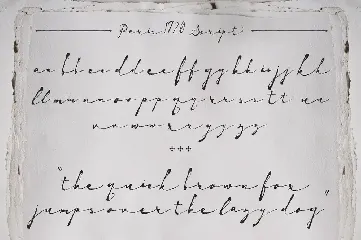 Paris 1770 Script
aa bb cc dd ee ff gg hh ii jj kk
ll mm nn oo pp qq rr ss tt uu
vv ww xx yy zz
+++
"the quick brown fox
jumps over the lazy dog"